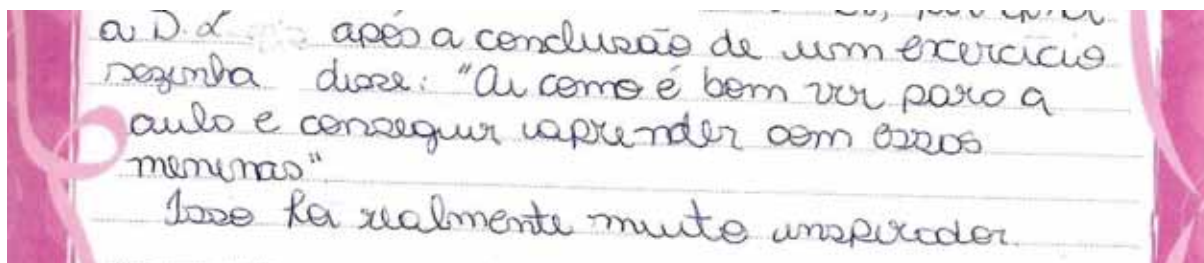 a D. L após a conclusão de um exercício
sozinha disse: "Ai como é bom vir para a
aula e conseguir aprender com essas
meninas"
Isso foi realmente muito inspirador.